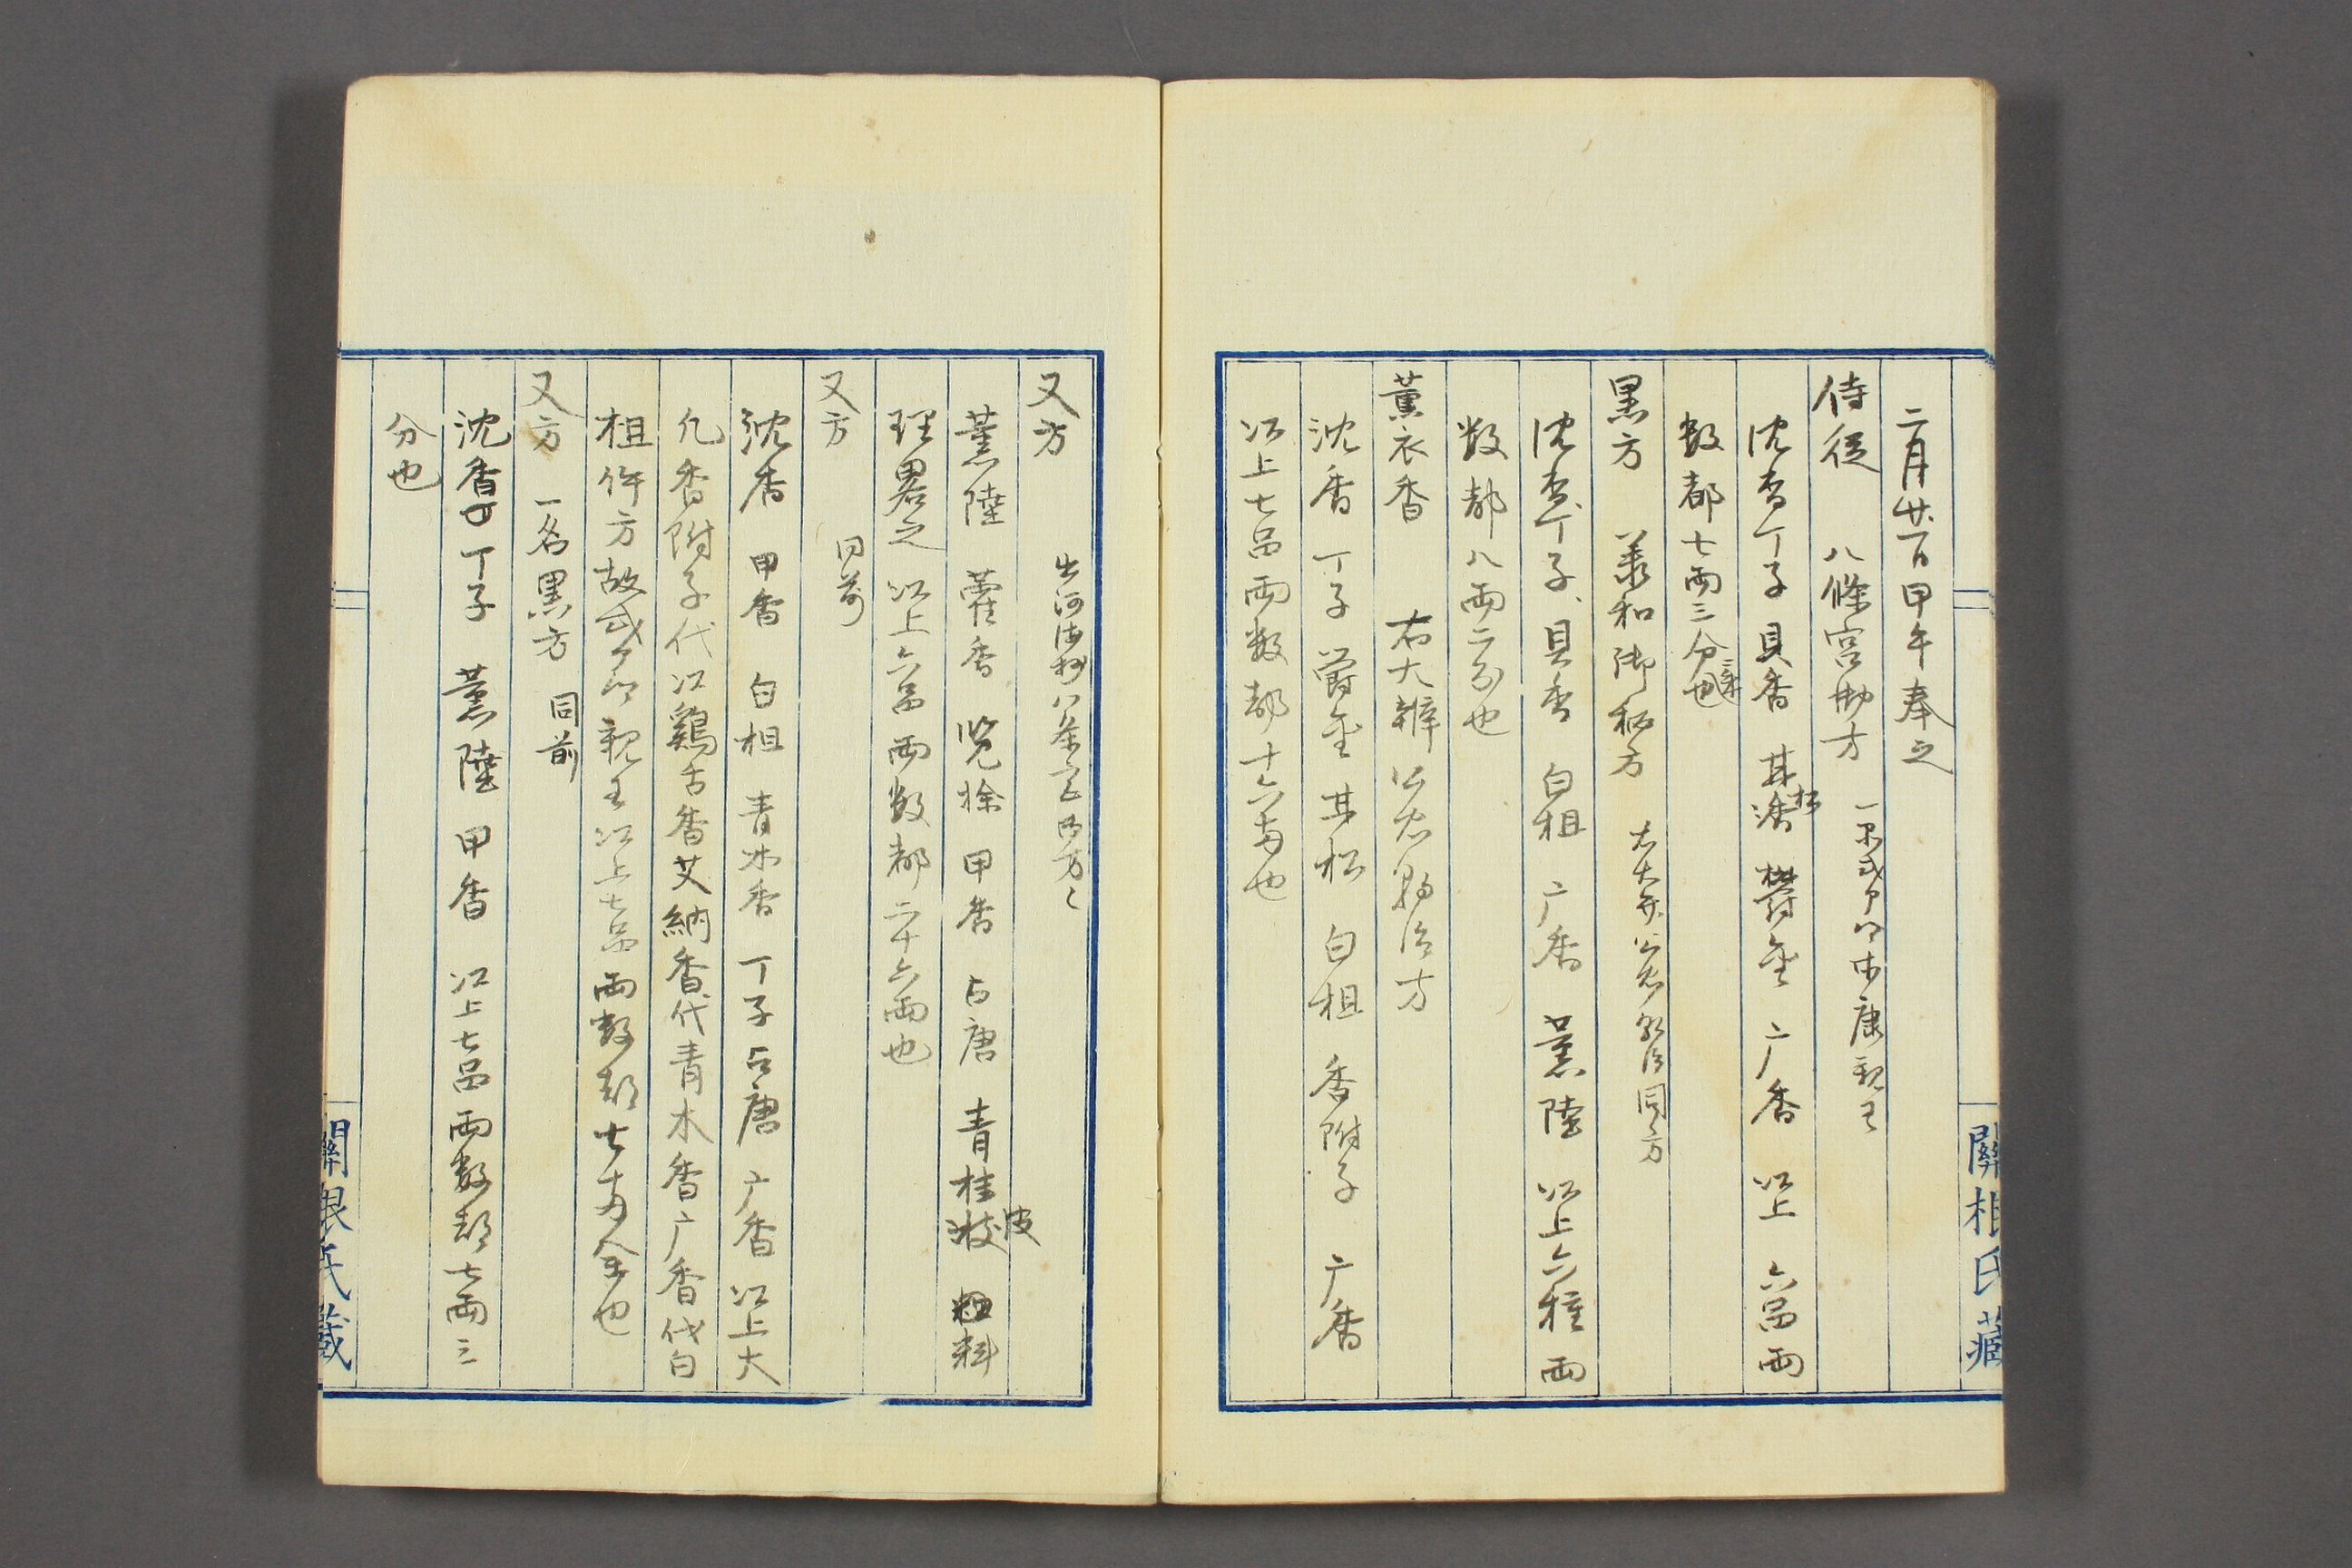 二月廿一日甲午奉之
侍従 八條宮勘方 一品式ア卿本康親王
沈香丁子 貝香 甘松 欝金 广香 以上 六品両
数都七両三分也
黒方 羕和御秘方 右大弁公忠 同方
沈香丁子 貝香 白柤 广香 薫陸 以上六種両
数都八両二分也
薫衣香 右大辨公忠朝臣方
沈香 丁子 欝金 甘松 白柤 香附子 广香
以上七品両数都十六両也
又方 出河海抄八条宮御方
薫陸 藿香 甲香 占唐 青桂皮 麁料
理畧之 以上六品両数都二十六両也
又方 同前
沈香 甲香 白柤 青木香 丁子 占唐 广香 以上大
凢香附子代以鷄舌香艾納香代青木香广香代白
柤件方故式ア卿親王以上七品両数都七両余也
又方 一名黒方 同前
沈香 丁子 薫陸 甲香 以上七品両数都七両三
分也
關根氏藏
關根氏藏